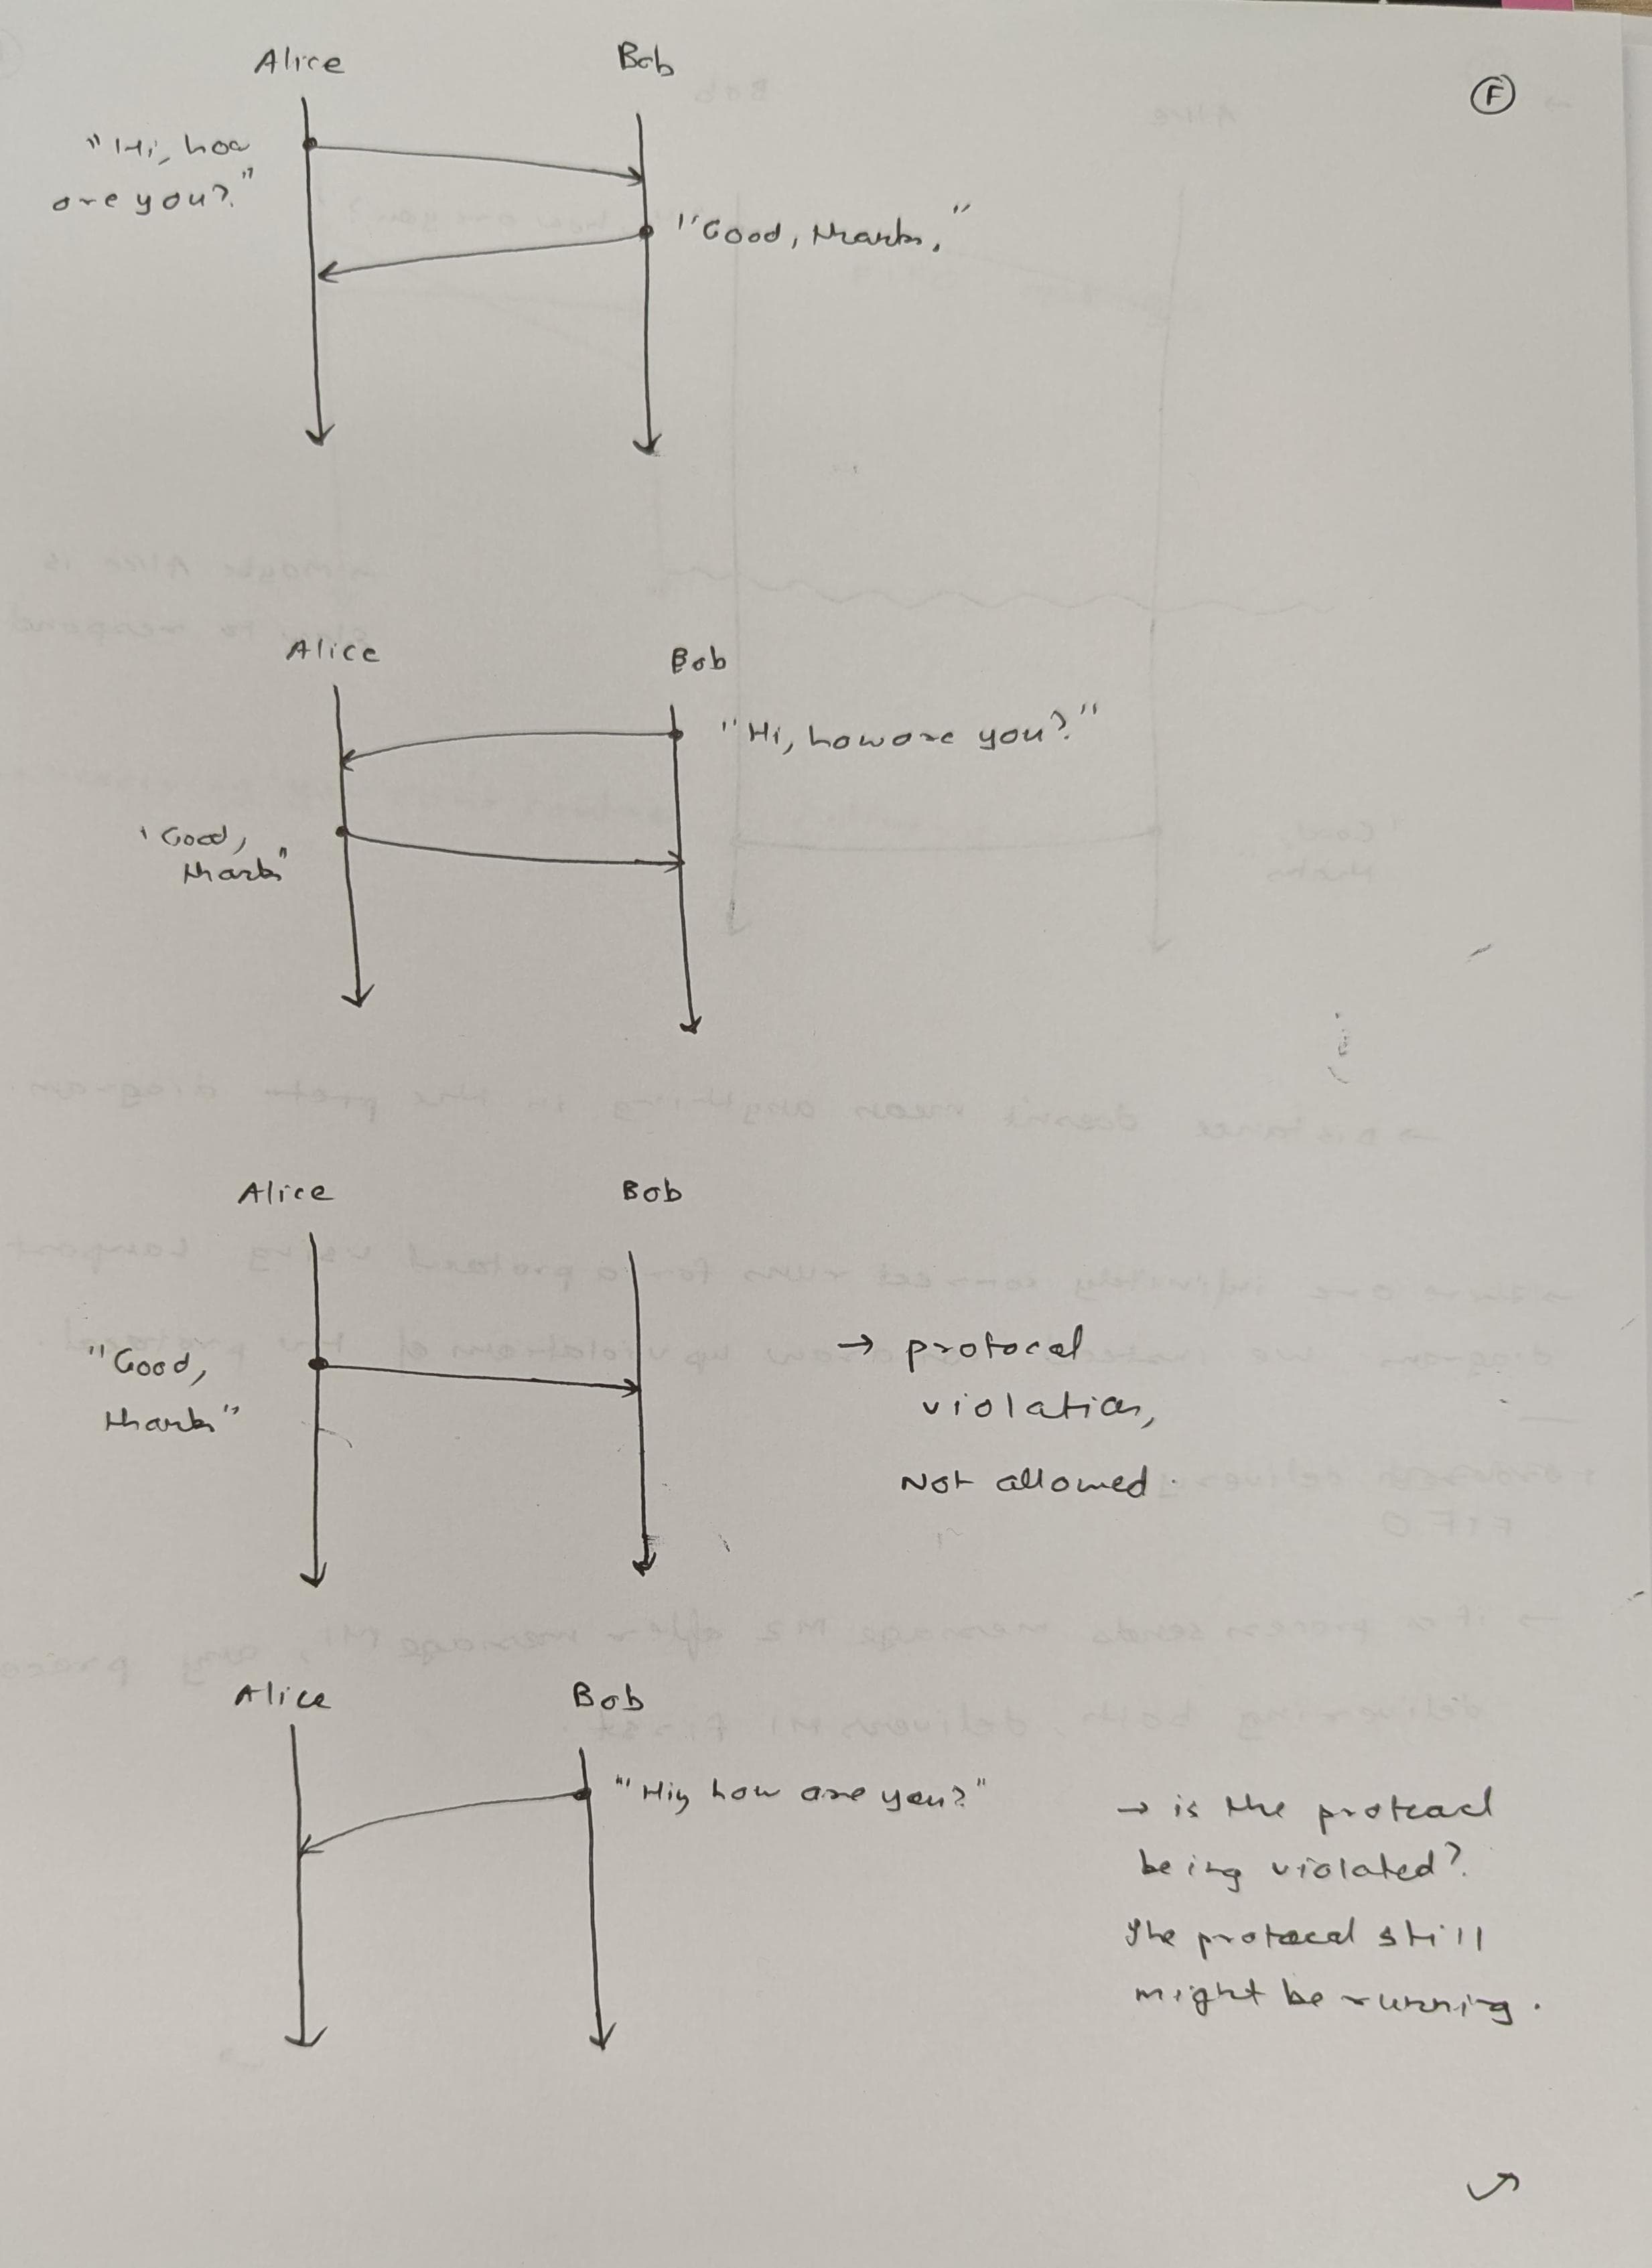 Alice Bob
F
"Hi, how
are you?"
"Good, thanks,"
Alice Bob
"Hi, how are you?"
"Good,
thanks"
Alice Bob
"Good,
thanks"
→ protocol
violation,
Not allowed.
Alice Bob
"Hi, how are you?"
→ is the protocol
being violated?
The protocol still
might be running.